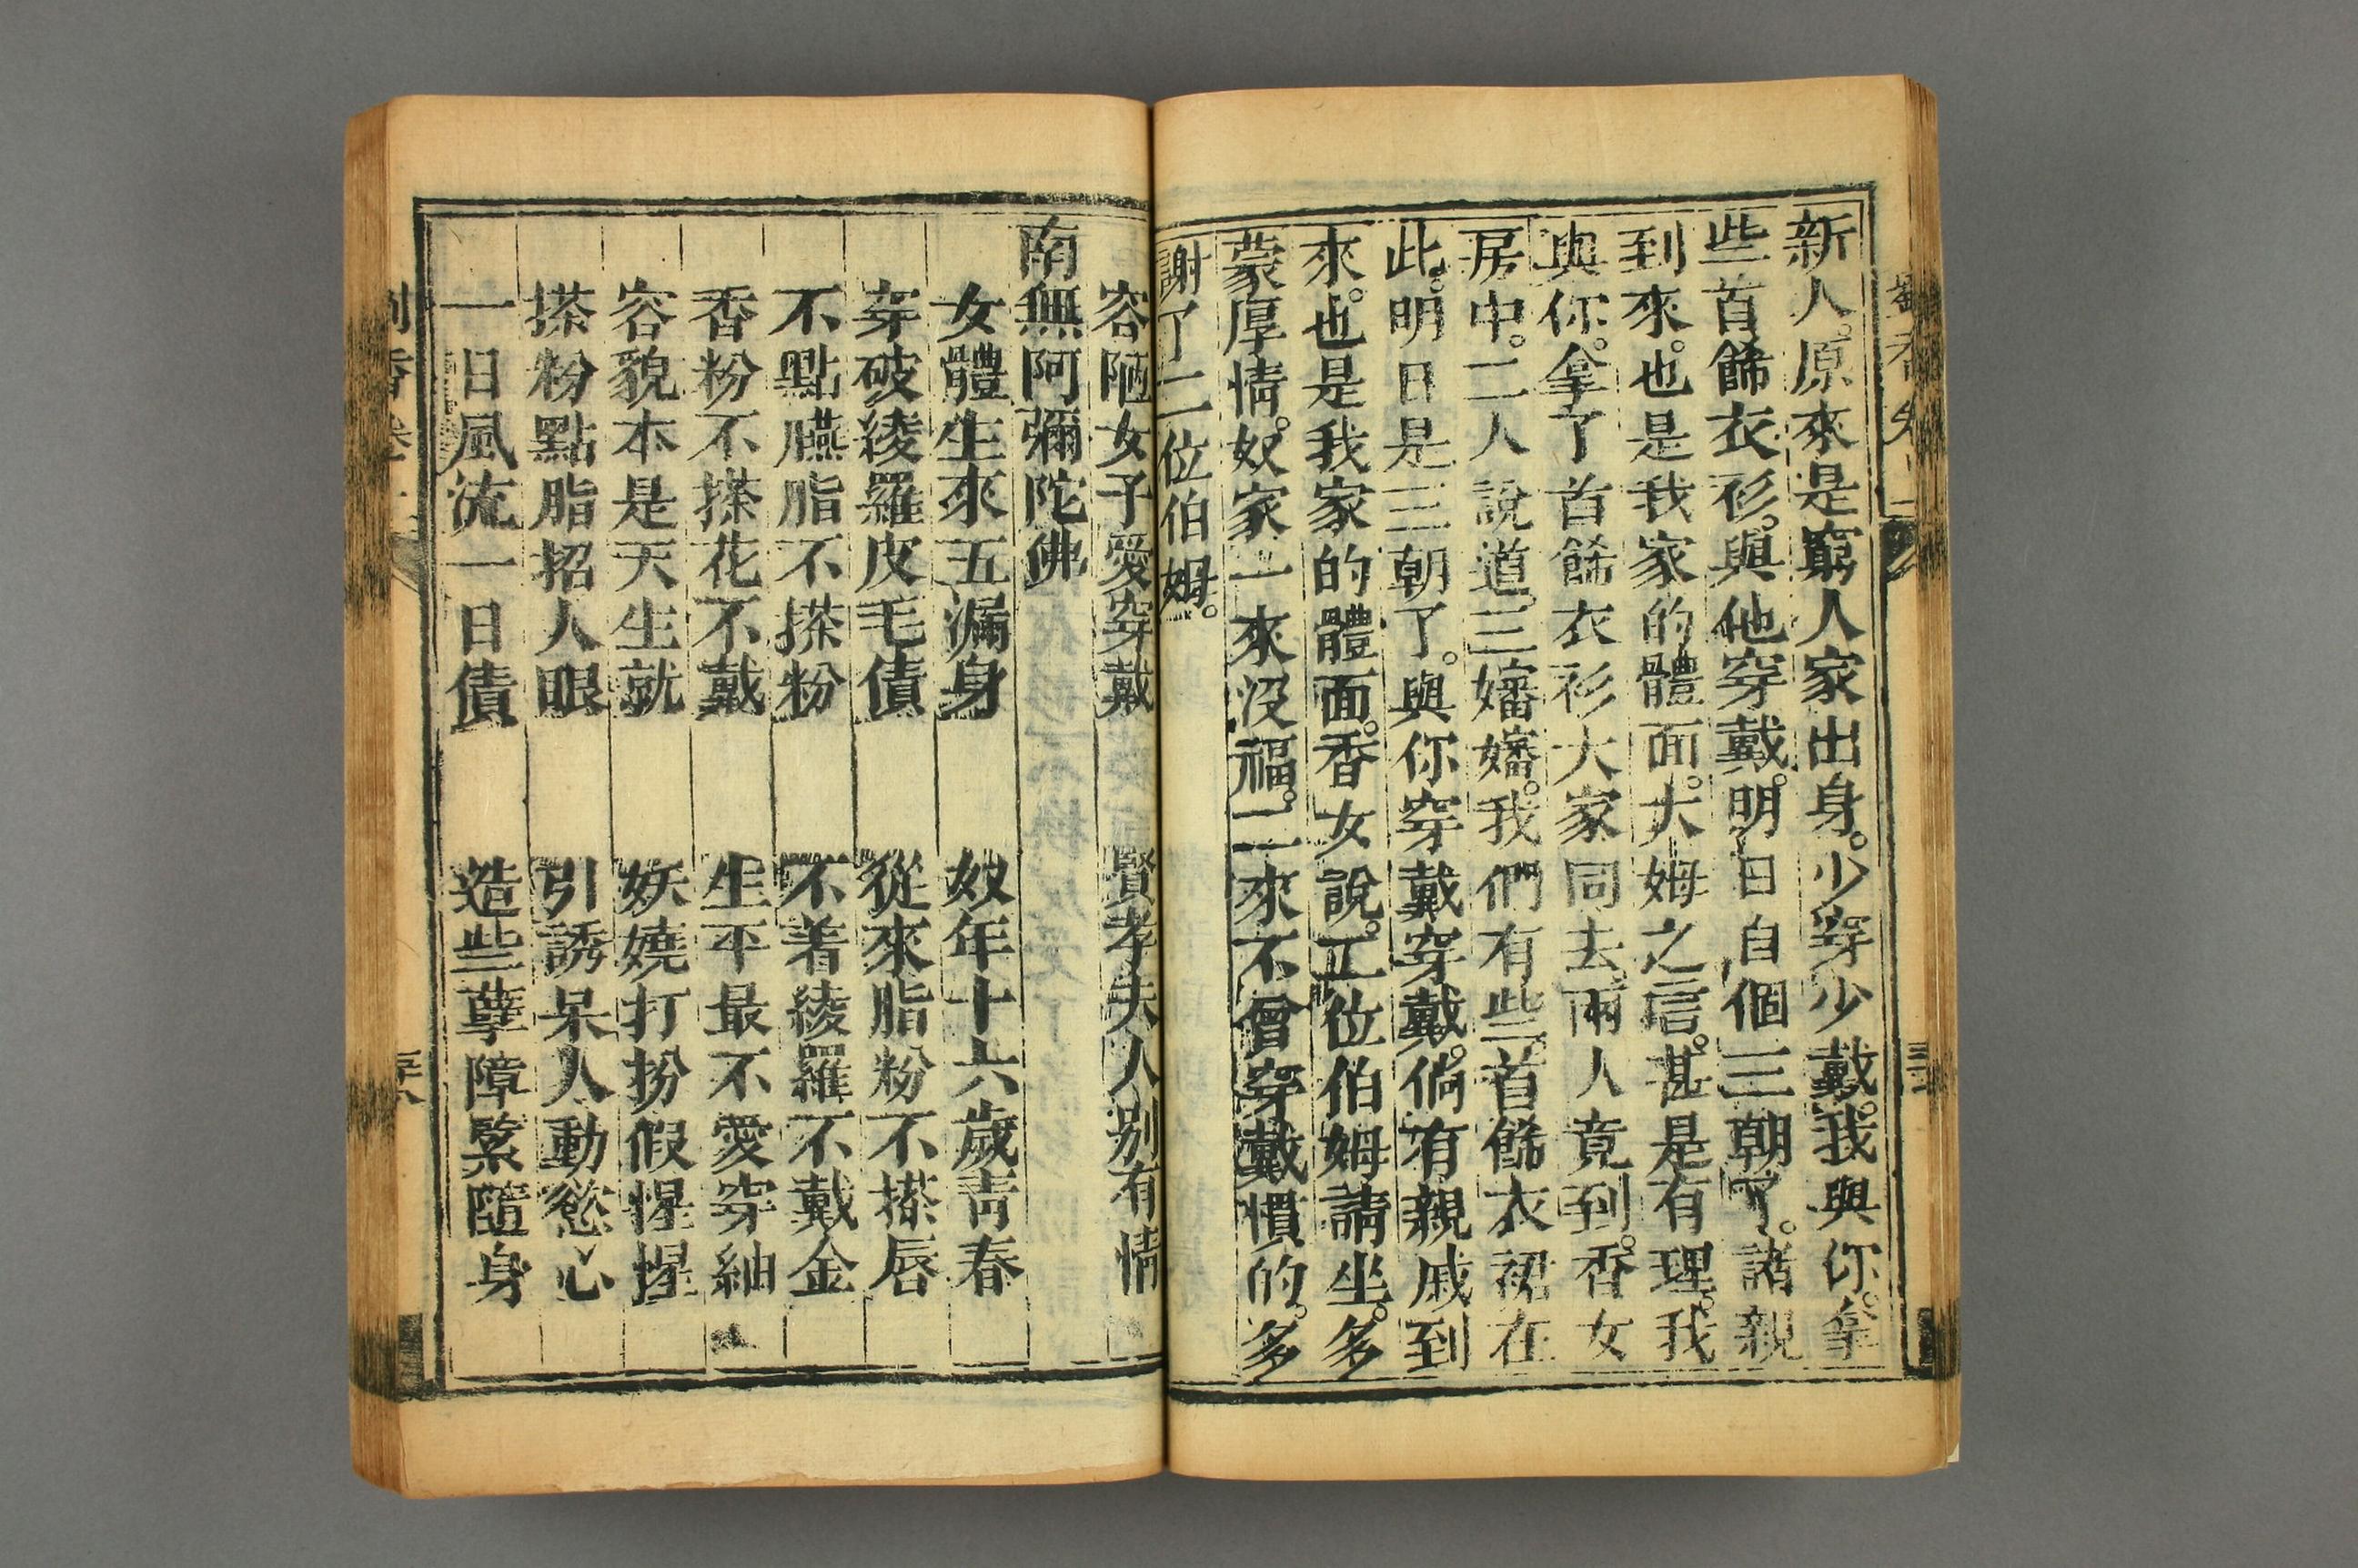 新人。原來是窮人家出身。少穿少戴。我與你。拿
些首餙衣衫。與他穿戴。明日自個三朝了。諸親
到來。也是我家的體面。大姆之言。甚是有理。我
與你。拿了首餙衣衫大家同去。兩人竟到。香女
房中。二人說道。三嬸嬸。我們有些首餙衣裙在
此。明日是三朝了。與你穿戴穿戴。倘有親戚到
來。也是我家的體面。香女說。二位伯姆請坐。多
蒙厚情。奴家一來没福。二來不曾穿戴慣的。多
謝了二位伯姆。
容陋女子愛穿戴　賢孝夫人别有情
南無阿彌陀佛
女體生來五漏身　奴年十六歲青春
穿破綾羅皮毛債　從來脂粉不搽唇
不點臙脂不搽粉　不着綾羅不戴金
香粉不搽花不戴　生平最不愛穿紬
容貌本是天生就　妖嬈打扮假惺惺
搽粉點脂招人眼　引誘呆人動慾心
一日風流一日債　造些孽障緊隨身